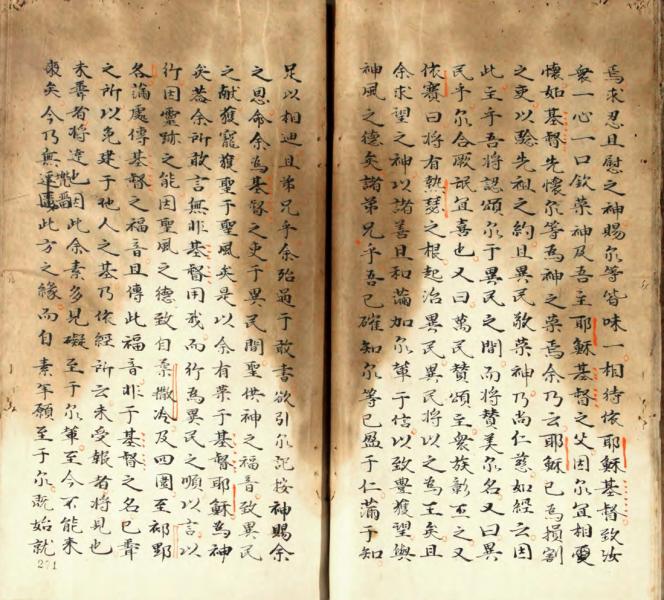 焉求忍且慰之神賜尔等皆味一相待依耶穌基督致汝
衆一心一口欽榮神及吾主耶穌基督之父因尔宜相愛
懷如基督先懷尔等為神之榮焉余乃云耶穌已為損割
之吏以驗先祖之約且異民敬榮神乃尚仁慈如經云因
此主乎吾將認頌尔于異民之間而將賛美尔名又曰異
民乎尔合厥氓宜喜也又曰萬民賛頌主衆族彰丕之又
依賽曰將有熱瑟之根起治異民異民將以之為王矣且
余求望之神以諸善且和蒲加尔軰于信以致豐獲望與
神風之德矣諸弟兄乎吾已確知尔等已盈于仁蒲于知
足以相迪且弟兄乎余殆過于敢書欲引尔記按神賜余
之恩命余為基督之吏于異民間聖供神之福音致異民
之献獲寵獲聖于聖風矣是以余有榮于基督耶穌為神
矣葢余所敢言無非基督用我而行為異民之順以言以
行因靈跡之能因聖風之德致自柔撒冷及四圍至野
各蒲處傳基督之福音且傳此福音非于基督之名已聲
之所以免建于他人之基乃依經所云未受報者將見也
未聲者將達也因此余素多見礙至于尔軰至今不能来
矣今乃無此方之緣而自素年願至于尔既始就
271